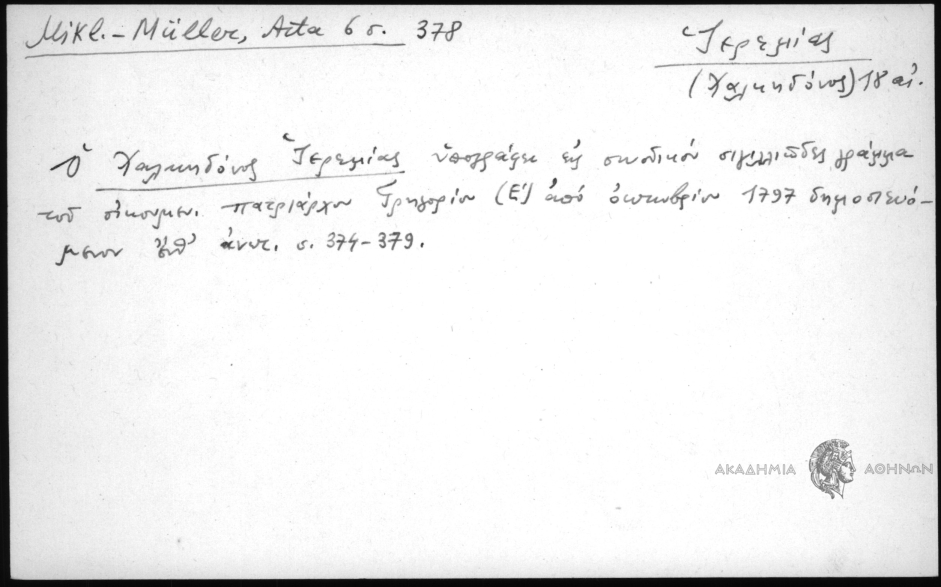 Mikl.-Müller, Acta 6 σ. 378
Ἱερεμίας
(Χαλκηδόνος) 18 αἰ.
Ὁ Χαλκηδόνος Ἱερεμίας ὑπογράφει εἰς συνοδικόν σιγιλλιῶδες γράμμα
τοῦ οἰκουμεν. πατριάρχου Γρηγορίου (Ε΄) ἀπό ὀκτωβρίου 1797 δημοσιευό-
μενον ἐνθ' ἀνωτ. σ. 374-379.
ΑΚΑΔΗΜΙΑ ΑΘΗΝΩΝ